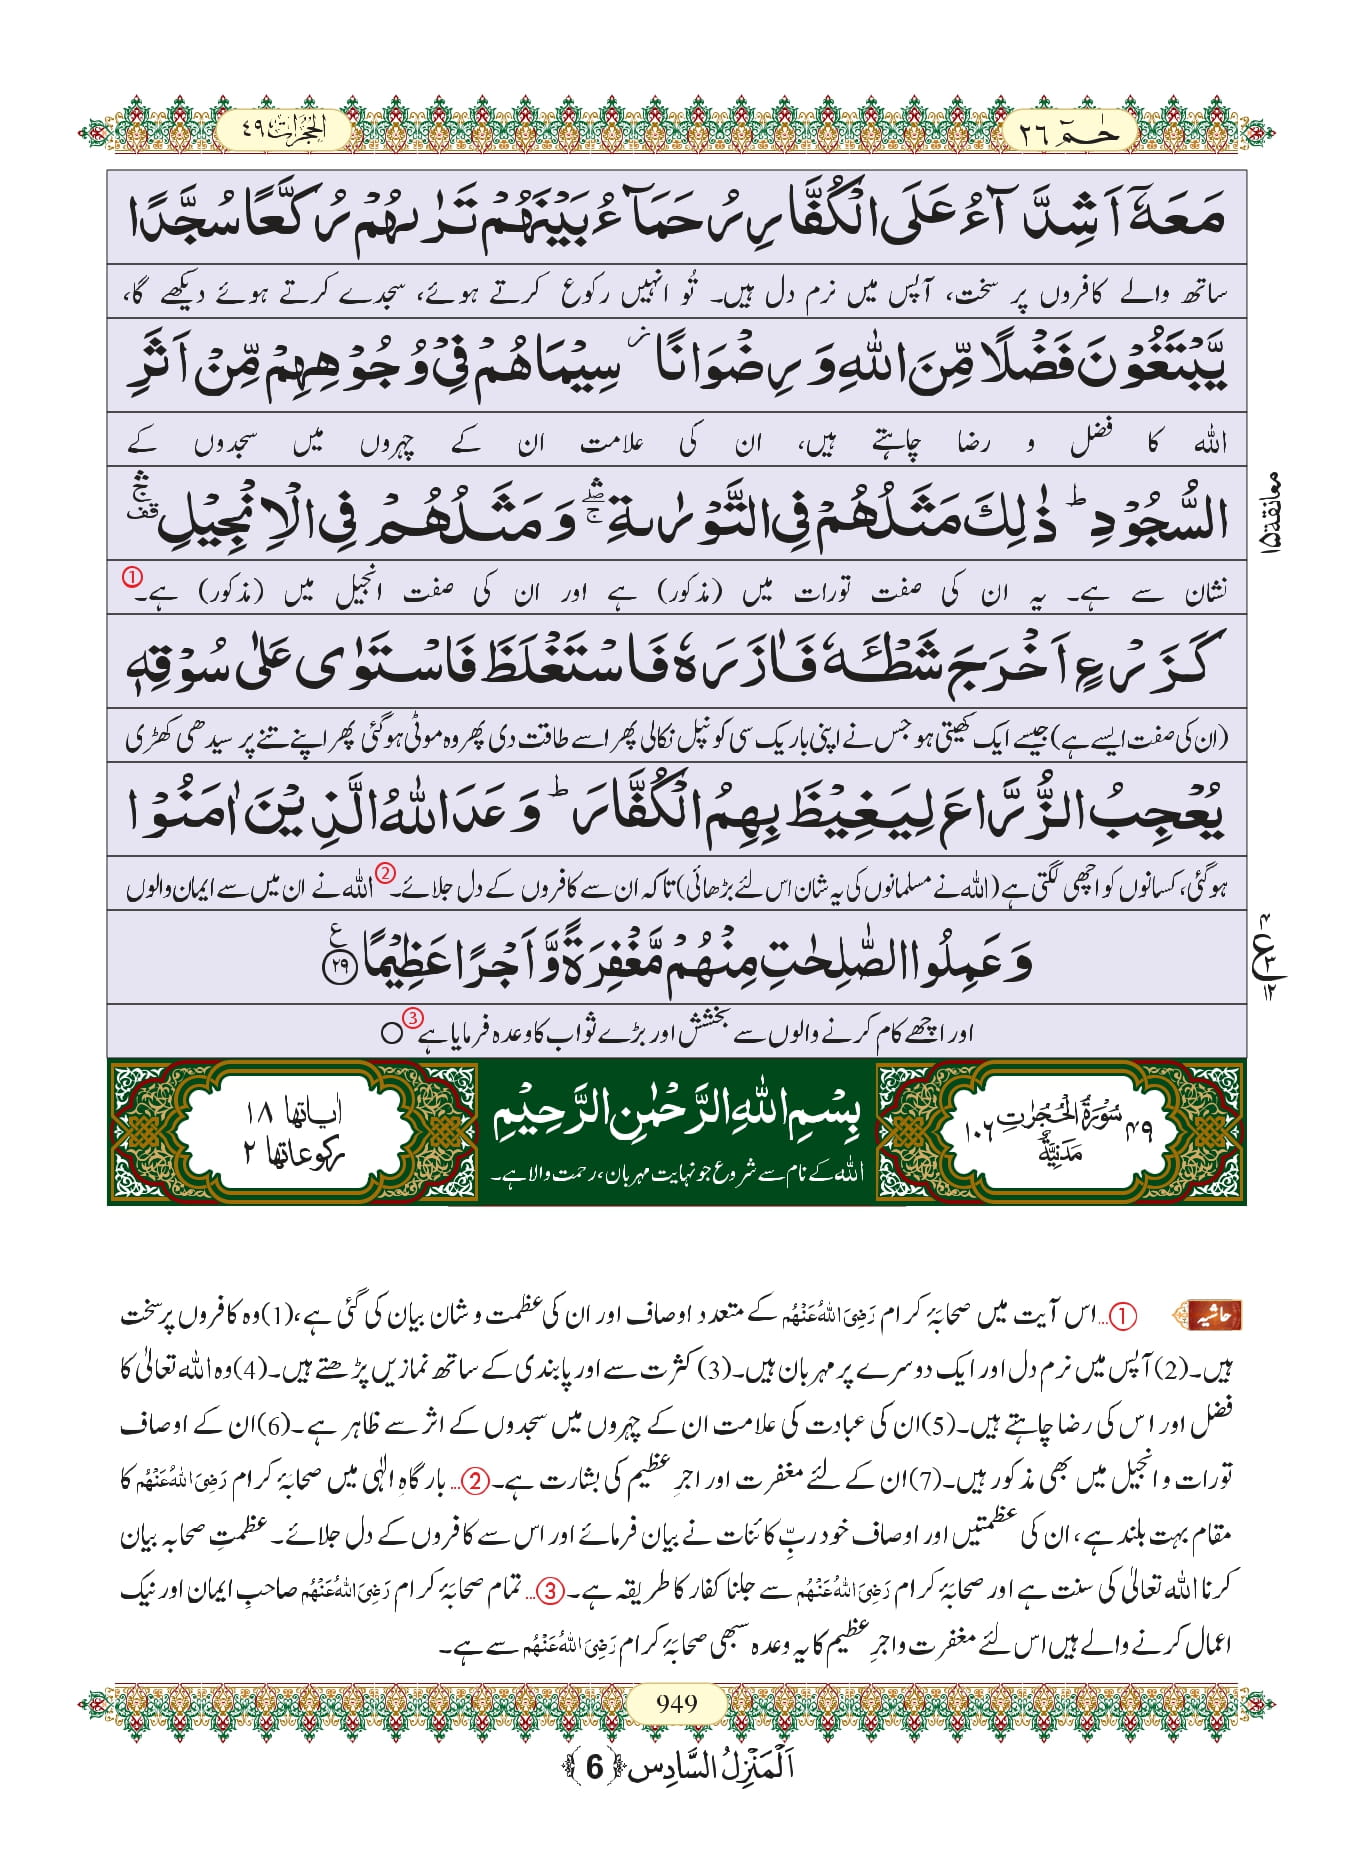 حٰمٓ ٢٦
الحجرات ٤٩
مَعَهٗۤ اَشِدَّآءُ عَلَی الْكُفَّارِ رُحَمَآءُ بَیْنَهُمْ تَرٰىهُمْ رُكَّعًا سُجَّدًا
ساتھ والے کافروں پر سخت، آپس میں نرم دل ہیں۔ تُو انہیں رکوع کرتے ہوئے، سجدے کرتے ہوئے دیکھے گا،
یَّبْتَغُوْنَ فَضْلًا مِّنَ اللّٰهِ وَ رِضْوَانًا ؗ سِیْمَاهُمْ فِیْ وُجُوْهِهِمْ مِّنْ اَثَرِ
اللہ کا فضل و رضا چاہتے ہیں، ان کی علامت ان کے چہروں میں سجدوں کے
السُّجُوْدِ ؕ ذٰلِكَ مَثَلُهُمْ فِی التَّوْرٰىةِ ۛۖۚ وَ مَثَلُهُمْ فِی الْاِنْجِیْلِ ۛۚ قف
معانقة ١٥
نشان سے ہے۔ یہ ان کی صفت تورات میں (مذکور) ہے اور ان کی صفت انجیل میں (مذکور) ہے۔①
كَزَرْعٍ اَخْرَجَ شَطْـَٔهٗ فَاٰزَرَهٗ فَاسْتَغْلَظَ فَاسْتَوٰى عَلٰى سُوْقِهٖ
(ان کی صفت ایسے ہے) جیسے ایک کھیتی ہو جس نے اپنی باریک سی کونپل نکالی پھر اسے طاقت دی پھر وہ موٹی ہو گئی پھر اپنے تنے پر سیدھی کھڑی
یُعْجِبُ الزُّرَّاعَ لِیَغِیْظَ بِهِمُ الْكُفَّارَ ؕ وَعَدَ اللّٰهُ الَّذِیْنَ اٰمَنُوْا
ہو گئی، کسانوں کو اچھی لگتی ہے (اللہ نے مسلمانوں کی یہ شان اس لئے بڑھائی) تاکہ ان سے کافروں کے دل جلائے۔② اللہ نے ان میں سے ایمان والوں
وَ عَمِلُوا الصّٰلِحٰتِ مِنْهُمْ مَّغْفِرَةً وَّ اَجْرًا عَظِیْمًا ع ٢٩
٤ ع ٣ ١٢
اور اچھے کام کرنے والوں سے بخشش اور بڑے ثواب کا وعدہ فرمایا ہے③ ○
٤٩ سُوْرَةُ الْحُجُرٰتِ مَدَنِيَّةٌ ١٠٦
بِسْمِ اللّٰهِ الرَّحْمٰنِ الرَّحِیْمِ
اللہ کے نام سے شروع جو نہایت مہربان، رحمت والا ہے۔
اٰیاتها ١٨
رکوعاتها ٢
حاشیہ ①... اس آیت میں صحابۂ کرام رَضِیَ اللہُ عَنْہُم کے متعدد اوصاف اور ان کی عظمت و شان بیان کی گئی ہے، (1) وہ کافروں پر سخت
ہیں۔ (2) آپس میں نرم دل اور ایک دوسرے پر مہربان ہیں۔ (3) کثرت سے اور پابندی کے ساتھ نمازیں پڑھتے ہیں۔ (4) وہ اللہ تعالیٰ کا
فضل اور اس کی رضا چاہتے ہیں۔ (5) ان کی عبادت کی علامت ان کے چہروں میں سجدوں کے اثر سے ظاہر ہے۔ (6) ان کے اوصاف
تورات و انجیل میں بھی مذکور ہیں۔ (7) ان کے لئے مغفرت اور اجرِ عظیم کی بشارت ہے۔ ②... بارگاہِ الٰہی میں صحابۂ کرام رَضِیَ اللہُ عَنْہُم کا
مقام بہت بلند ہے، ان کی عظمتیں اور اوصاف خود ربِّ کائنات نے بیان فرمائے اور اس سے کافروں کے دل جلائے۔ عظمتِ صحابہ بیان
کرنا اللہ تعالیٰ کی سنت ہے اور صحابۂ کرام رَضِیَ اللہُ عَنْہُم سے جلنا کفار کا طریقہ ہے۔ ③... تمام صحابۂ کرام رَضِیَ اللہُ عَنْہُم صاحبِ ایمان اور نیک
اعمال کرنے والے ہیں اس لئے مغفرت و اجرِ عظیم کا یہ وعدہ سبھی صحابۂ کرام رَضِیَ اللہُ عَنْہُم سے ہے۔
949
اَلْمَنْزِلُ السَّادِس ﴿6﴾